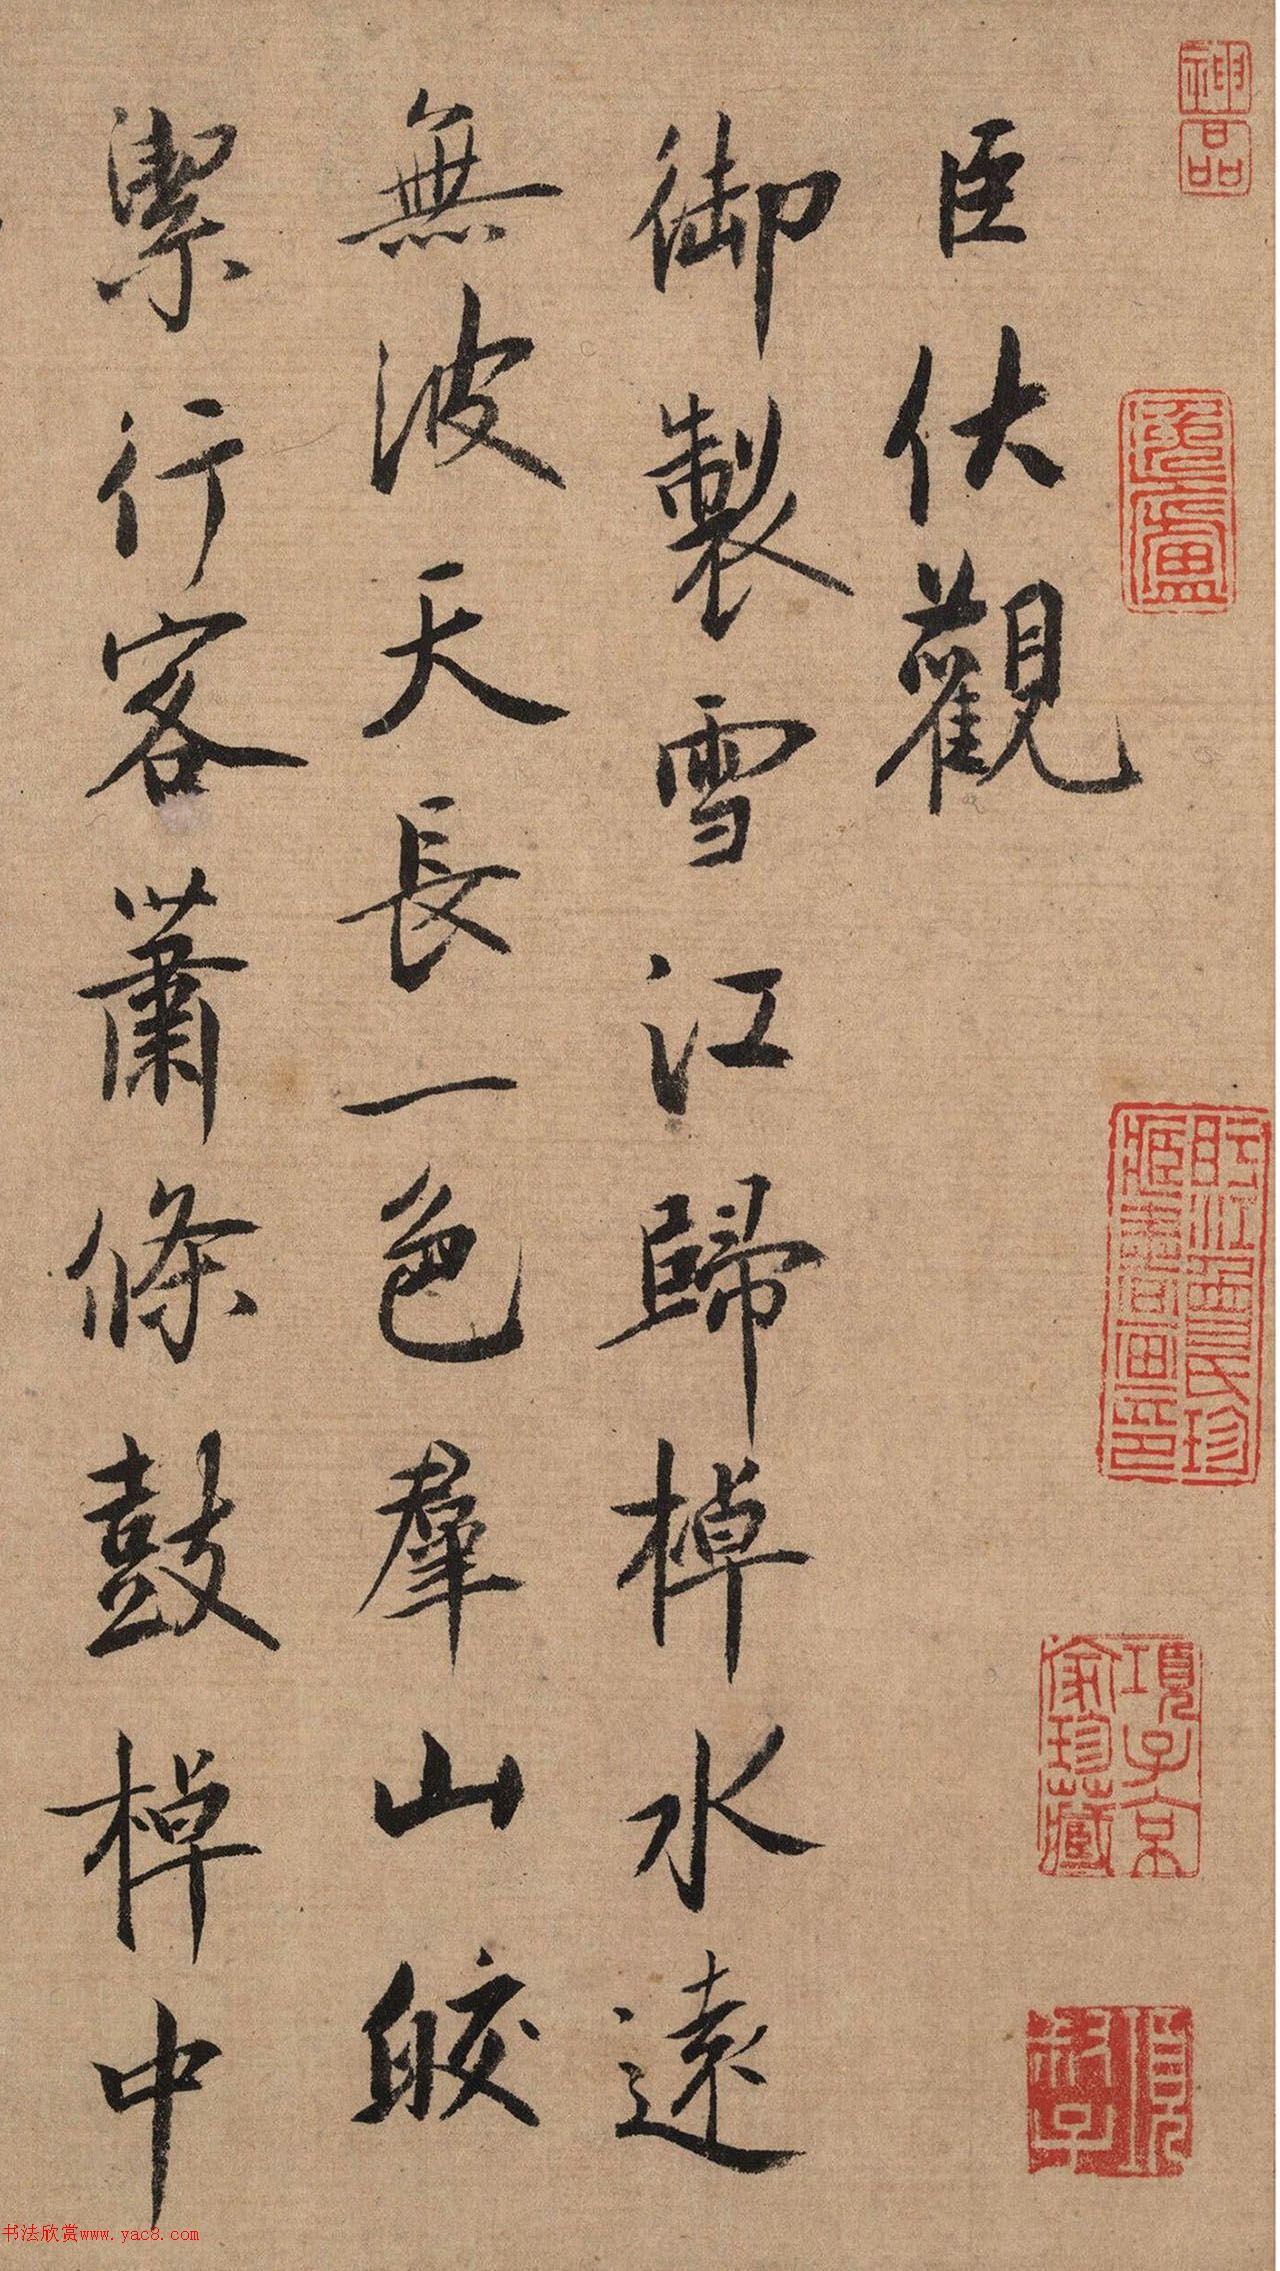 臣伏觀
御製雪江歸棹水遠
無波天長一色羣山皎
潔行客蕭條鼓棹中
神品
盱江曾氏珍藏書畫印
項子京家珍藏
书法欣赏www.yac8.com